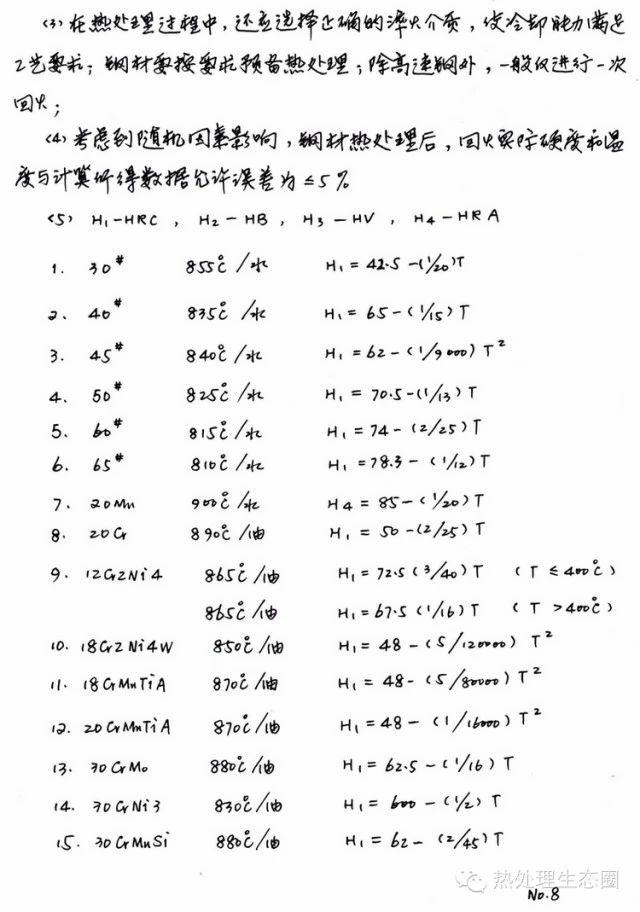 (3) 在热处理过程中，还应选择正确的淬火介质，使冷却能力满足
工艺要求；钢材要按要求预备热处理；除高速钢外，一般仅进行一次
回火；
(4) 考虑到随机因素影响，钢材热处理后，回火实际硬度和温
度与计算所得数据允许误差为≤5%
(5) H₁-HRC ， H₂-HB， H₃-HV ， H₄-HRA
1. 30# 855℃/水 H₁=42.5-(1/20)T
2. 40# 835℃/水 H₁=65-(1/15)T
3. 45# 840℃/水 H₁=62-(1/9000)T²
4. 50# 825℃/水 H₁=70.5-(1/13)T
5. 60# 815℃/水 H₁=74-(2/25)T
6. 65# 810℃/水 H₁=78.3-(1/12)T
7. 20Mn 900℃/水 H₄=85-(1/20)T
8. 20Cr 890℃/油 H₁=50-(2/25)T
9. 12Cr2Ni4 865℃/油 H₁=72.5(3/40)T (T≤400℃)
865℃/油 H₁=67.5(1/16)T (T>400℃)
10. 18Cr2Ni4W 850℃/油 H₁=48-(5/120000)T²
11. 18CrMnTiA 870℃/油 H₁=48-(5/80000)T²
12. 20CrMnTiA 870℃/油 H₁=48-(1/16000)T²
13. 30CrMo 880℃/油 H₁=62.5-(1/16)T
14. 30CrNi3 830℃/油 H₁=600-(1/2)T
15. 30CrMnSi 880℃/油 H₁=62-(2/45)T
热处理生态圈
No.8